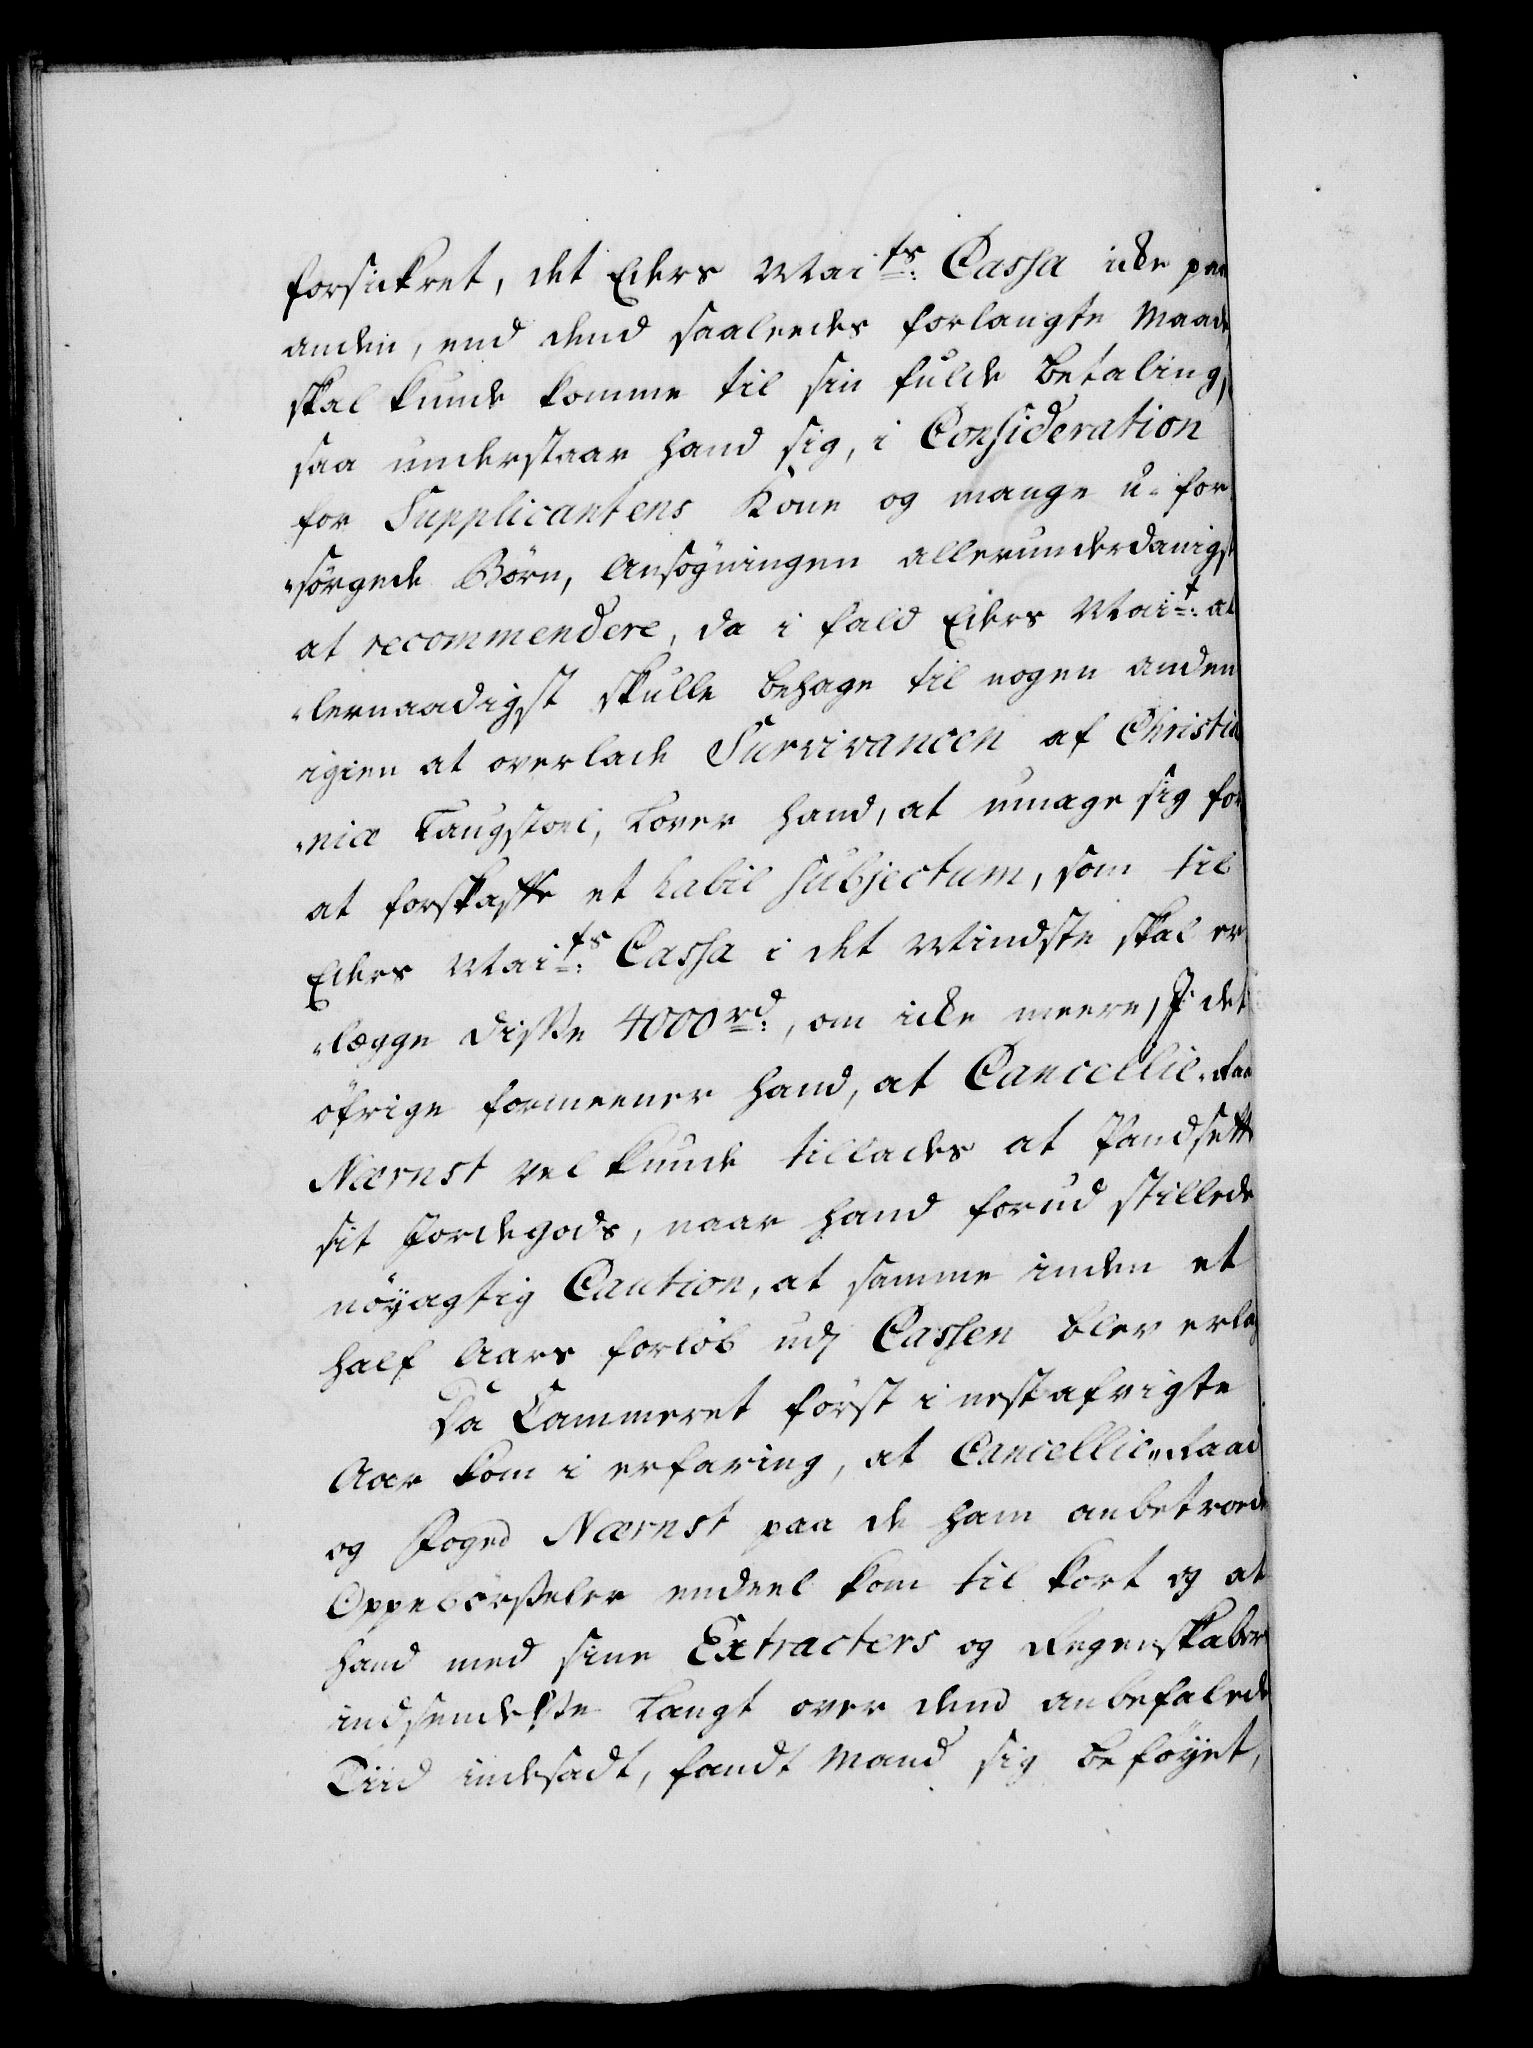 forsickret, det Eders Maits: Cassa icke paa
anden, end dend saaleedes forlangte Maade
skal kunde komme til sin fulde betaling,
saa understaar hand sig, i Consideration
for Supplicantens Kone og mange u-for
-sörgede Börn, Ansögningen allerunderdanigst
at recommendere, da i fald Eders Mait: al
-lernaadigst skulle behage til nogen anden
igien at overlade Survivancen af Christia
-niæ Laugstoel, lover hand, at umage sig for
at forskaffe et habil Subjectum, som til
Eders Maits: Cassa i det Mindste skal er
-lægge disse 4000 rd:, om icke meere, J det
öfrige formeener hand, at Cancellie-Raa
Nærnst vel kunde tillades at Pandsette
sit Jordegods, naar hand forud stillede
nöyagtig Caution, at samme inden et
half Aars forlöb udj Cassen blev erlag
Da Cammeret först i nestafvigte
Aar kom i erfaring, at Cancellie-Raad
og Foged Nærnst paa de ham anbetroede
Oppebörseler endeel kom til kort og at
hand med sine Extracters og Regenskabers
indsendelse langt over dend anbefalede
Tiid indesadt, fandt Mand sig beföyet,